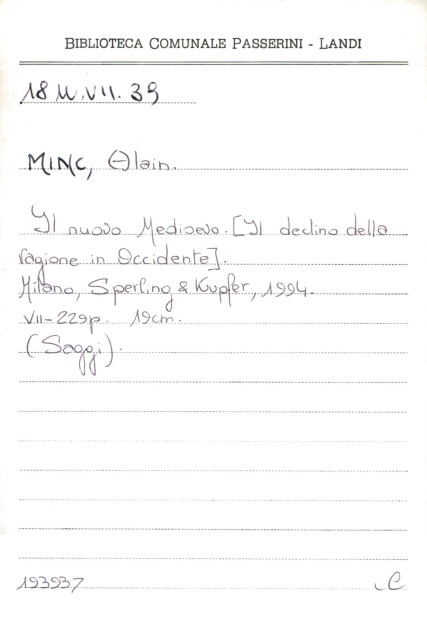 BIBLIOTECA COMUNALE PASSERINI - LANDI
18 M.VII.39
MINC, Alain.
Il nuovo Medioevo. [Il declino della
ragione in Occidente].
Milano, Sperling & Kupfer, 1994.
VII-229p. 19cm.
(Saggi).
193937
C